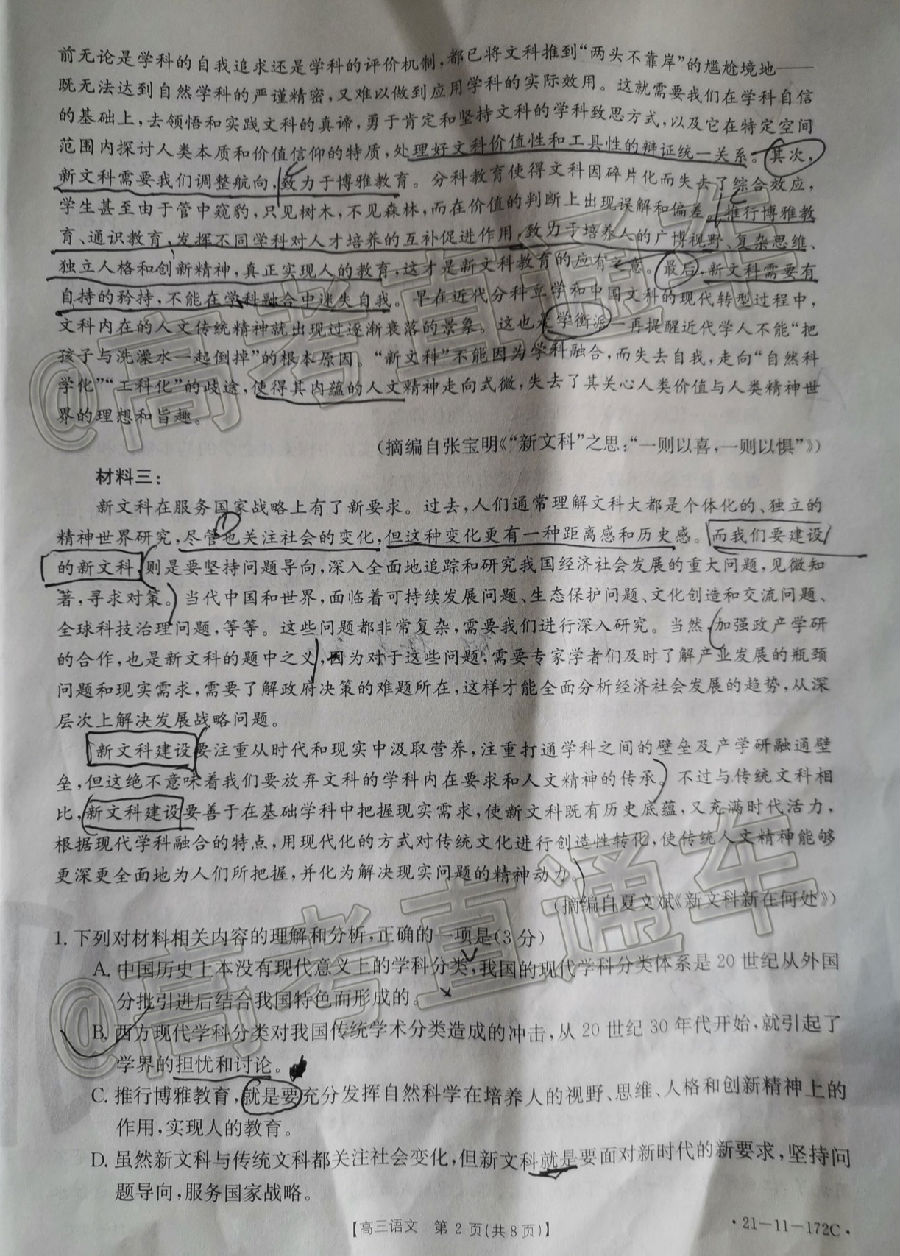 前无论是学科的自我追求还是学科的评价机制,都已将文科推到“两头不靠岸”的尴尬境地——
既无法达到自然学科的严谨精密,又难以做到应用学科的实际效用。这就需要我们在学科自信
的基础上,去领悟和实践文科的真谛,勇于肯定和坚持文科的学科致思方式,以及它在特定空间
范围内探讨人类本质和价值信仰的特质,处理好文科价值性和工具性的辩证统一关系。其次,
新文科需要我们调整航向,致力于博雅教育。分科教育使得文科因碎片化而失去了综合效应,
学生甚至由于管中窥豹,只见树木,不见森林,而在价值的判断上出现误解和偏差。推行博雅教
育、通识教育,发挥不同学科对人才培养的互补促进作用,致力于培养人的广博视野、复杂思维、
独立人格和创新精神,真正实现人的教育,这才是新文科教育的应有之意。最后,新文科需要有
自持的矜持,不能在学科融合中迷失自我。早在近代分科立学和中国文科的现代转型过程中,
文科内在的人文传统精神就出现过逐渐衰落的景象。这也是学衡派一再提醒近代学人不能“把
孩子与洗澡水一起倒掉”的根本原因。“新文科”不能因为学科融合,而失去自我,走向“自然科
学化”“工科化”的歧途,使得其内蕴的人文精神走向式微,失去了其关心人类价值与人类精神世
界的理想和旨趣。
(摘编自张宝明《“新文科”之思:“一则以喜,一则以惧”》)
材料三:
新文科在服务国家战略上有了新要求。过去,人们通常理解文科大都是个体化的、独立的
精神世界研究,尽管也关注社会的变化,但这种变化更有一种距离感和历史感。而我们要建设
的新文科,则是要坚持问题导向,深入全面地追踪和研究我国经济社会发展的重大问题,见微知
著,寻求对策。当代中国和世界,面临着可持续发展问题、生态保护问题、文化创造和交流问题、
全球科技治理问题,等等。这些问题都非常复杂,需要我们进行深入研究。当然,加强政产学研
的合作,也是新文科的题中之义,因为对于这些问题,需要专家学者们及时了解产业发展的瓶颈
问题和现实需求,需要了解政府决策的难题所在,这样才能全面分析经济社会发展的趋势,从深
层次上解决发展战略问题。
新文科建设要注重从时代和现实中汲取营养,注重打通学科之间的壁垒及产学研融通壁
垒,但这绝不意味着我们要放弃文科的学科内在要求和人文精神的传承。不过与传统文科相
比,新文科建设要善于在基础学科中把握现实需求,使新文科既有历史底蕴,又充满时代活力,
根据现代学科融合的特点,用现代化的方式对传统文化进行创造性转化,使传统人文精神能够
更深更全面地为人们所把握,并化为解决现实问题的精神动力。
(摘编自夏文斌《新文科新在何处》)
1.下列对材料相关内容的理解和分析,正确的一项是(3分)
A.中国历史上本没有现代意义上的学科分类,我国的现代学科分类体系是20世纪从外国
分批引进后结合我国特色而形成的。
B.西方现代学科分类对我国传统学术分类造成的冲击,从20世纪30年代开始,就引起了
学界的担忧和讨论。
C.推行博雅教育,就是要充分发挥自然科学在培养人的视野、思维、人格和创新精神上的
作用,实现人的教育。
D.虽然新文科与传统文科都关注社会变化,但新文科就是要面对新时代的新要求,坚持问
题导向,服务国家战略。
【高三语文 第2页(共8页)】
·21-11-172C·
@高考直通车
@高考直通车